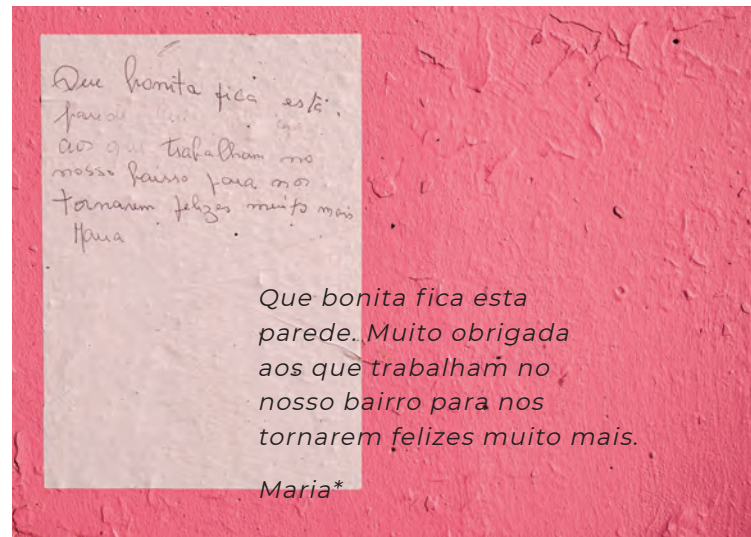 Que bonita fica esta
parede
aos que trabalham no
nosso bairro para nos
tornarem felizes muito mais
Maria
Que bonita fica esta
parede. Muito obrigada
aos que trabalham no
nosso bairro para nos
tornarem felizes muito mais.
Maria*